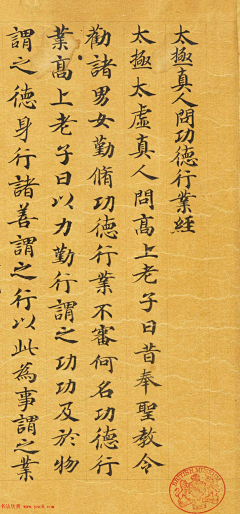 太極真人問功德行業經
太極太虛真人問高上老子曰昔奉聖教令
勸諸男女勤脩功德行業不審何名功德行
業高上老子曰以力勤行謂之功功及於物
謂之德身行諸善謂之行以此為事謂之業
BRITISH MUSEUM